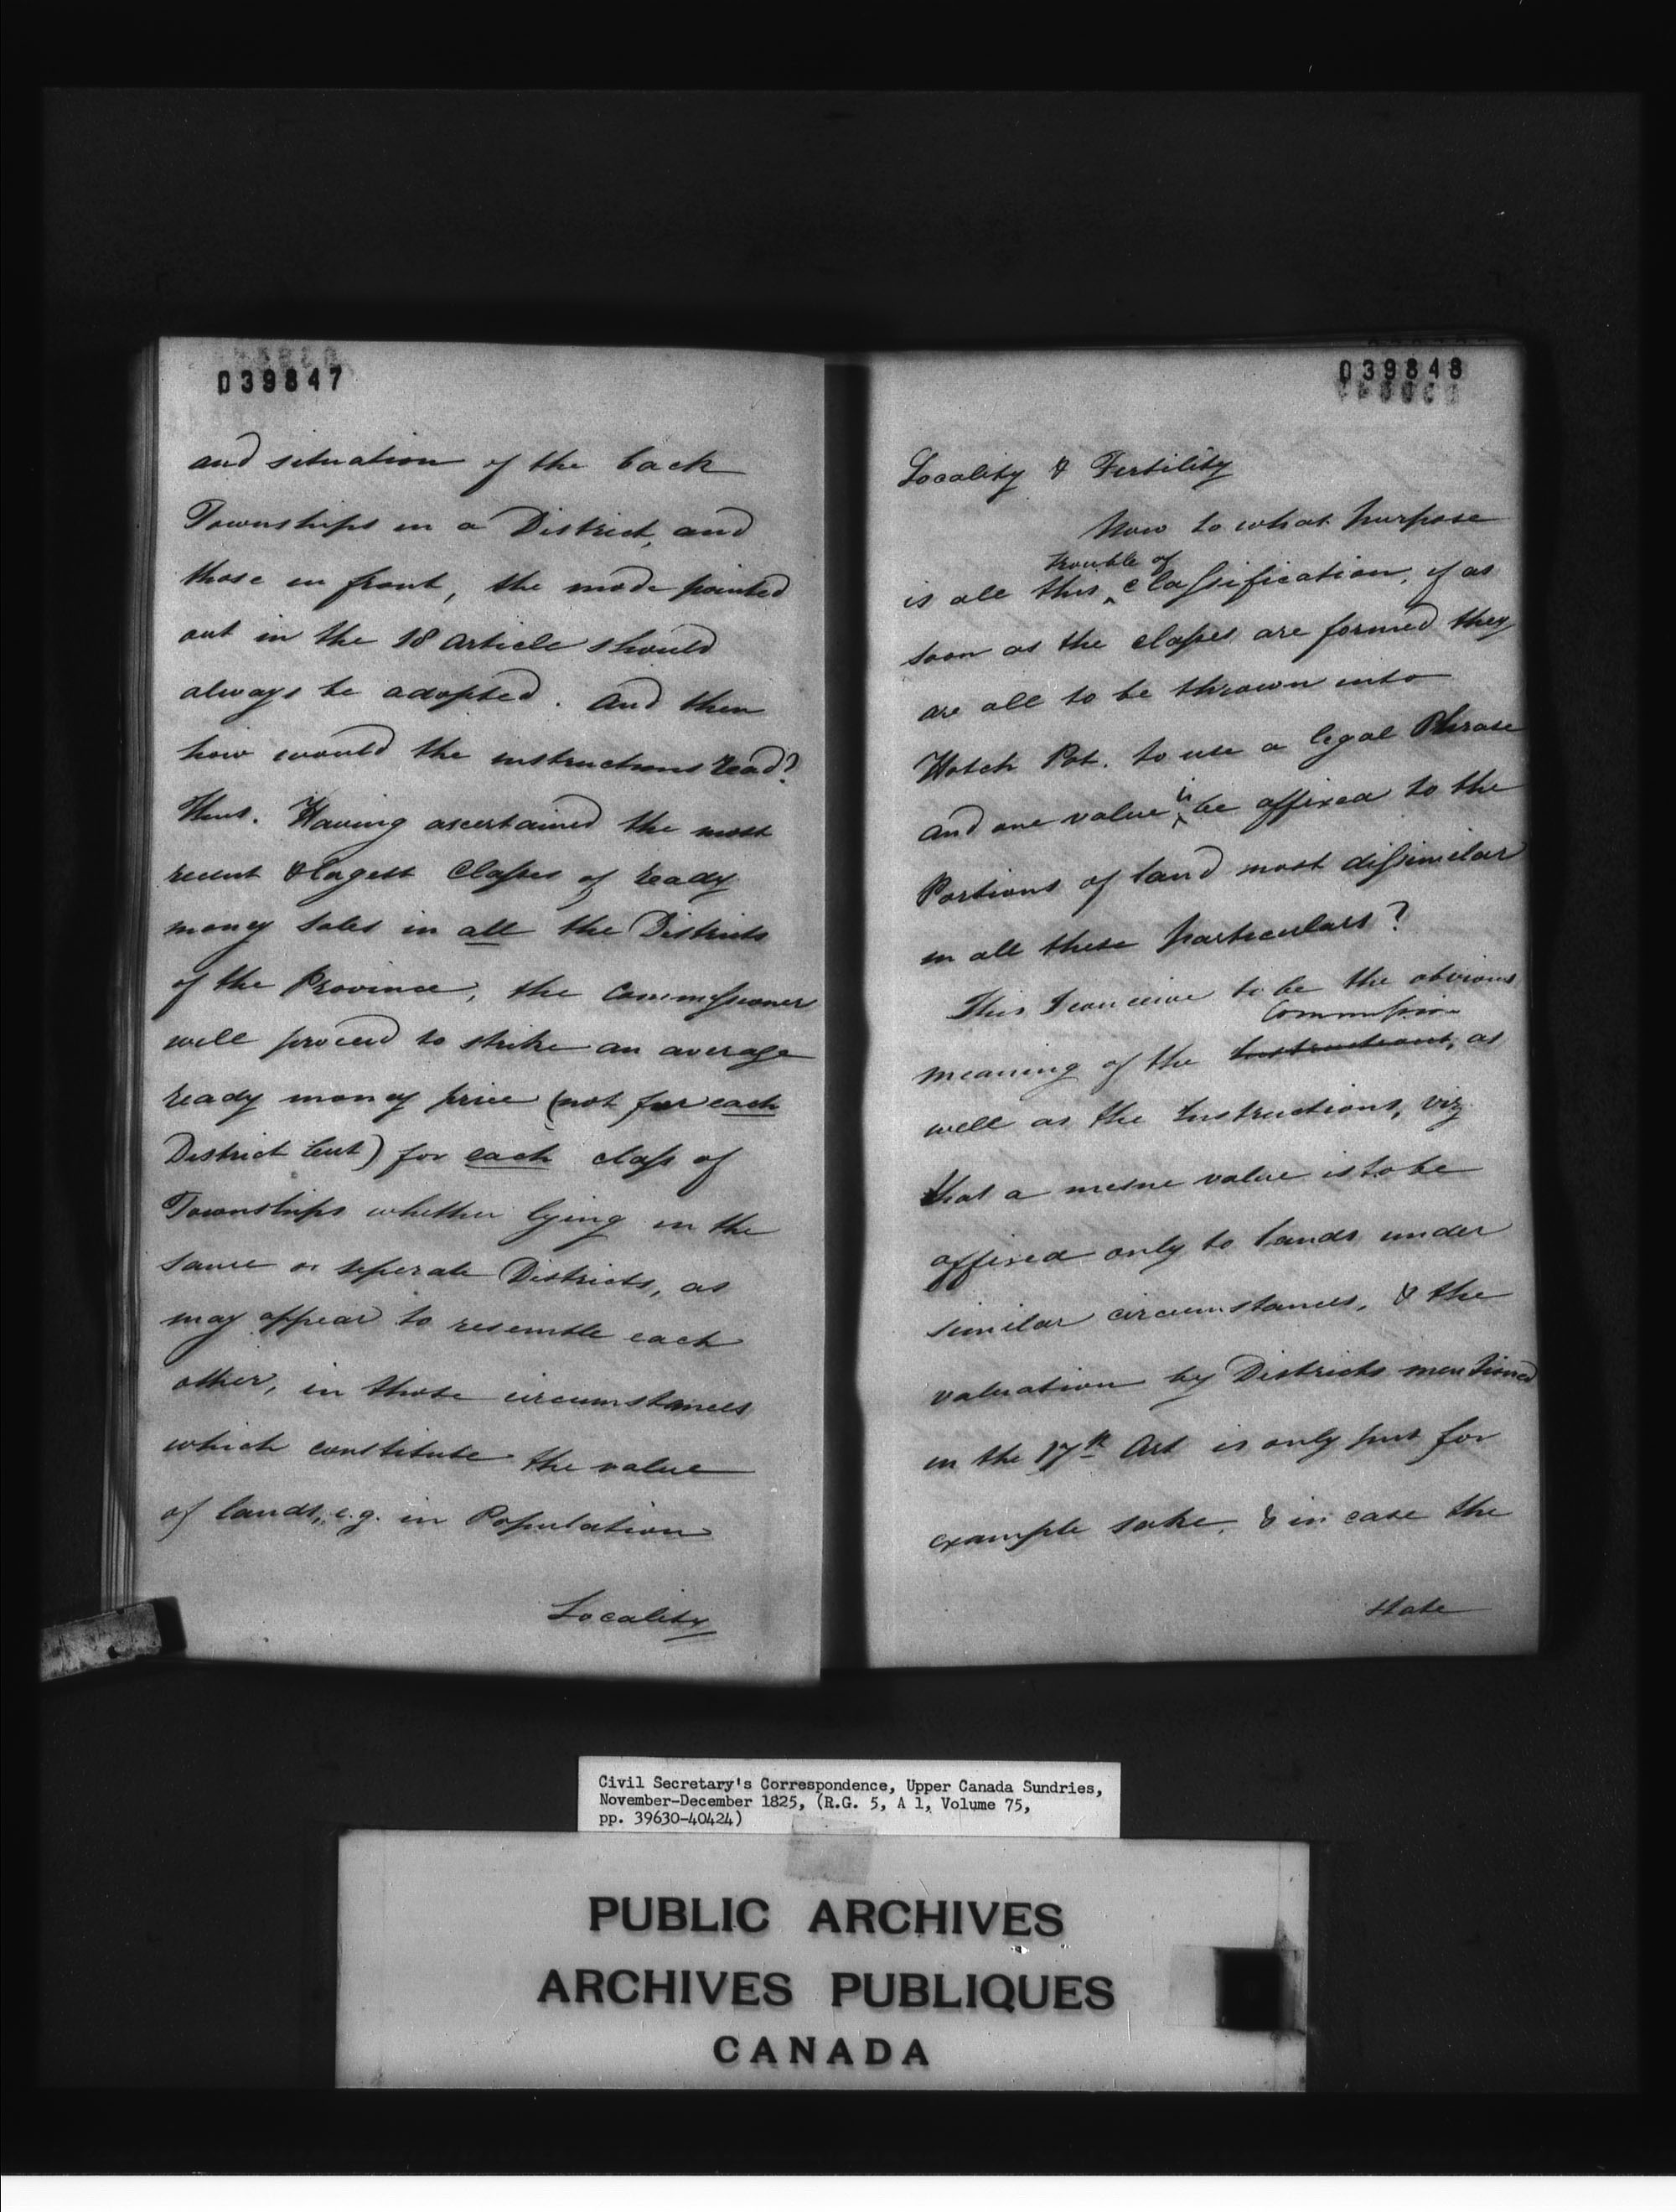 039847
and situation of the back
Townships in a District, and
those in front, the mode pointed
out in the 18 article should
always be adopted. And then
how would the instructions read?
Thus. Having ascertained the most
recent & lagest Classes of ready
money sales in all the Districts
of the Province, the Commissioner
will proceed to strike an average
ready money price (not for each
District but) for each class of
Townships whether lying in the
same or seperate Districts, as
may appear to resemble each
other, in those circumstances
which constitute the value
of lands, e.g. in Population
Locality
039848
Locality & Fertility
Now to what purpose
trouble of
is all this classification, if as
soon as the classes are formed they
are all to be thrown into
Hotch Pot. to use a legal Phrase
and one value is be affixed to the
Portions of land most dissimilar
in all these particulars?
This I conceive to be the obvious
Commission
meaning of the Instructions, as
well as the Instructions, viz
that a mesne value is to be
affixed only to lands under
similar circumstances, & the
valuation by Districts mentioned
in the 17th Art is only put for
example sake, & in case the
state
Civil Secretary's Correspondence, Upper Canada Sundries,
November-December 1825, (R.G. 5, A 1, Volume 75,
pp. 39630-40424)
PUBLIC ARCHIVES
ARCHIVES PUBLIQUES
CANADA